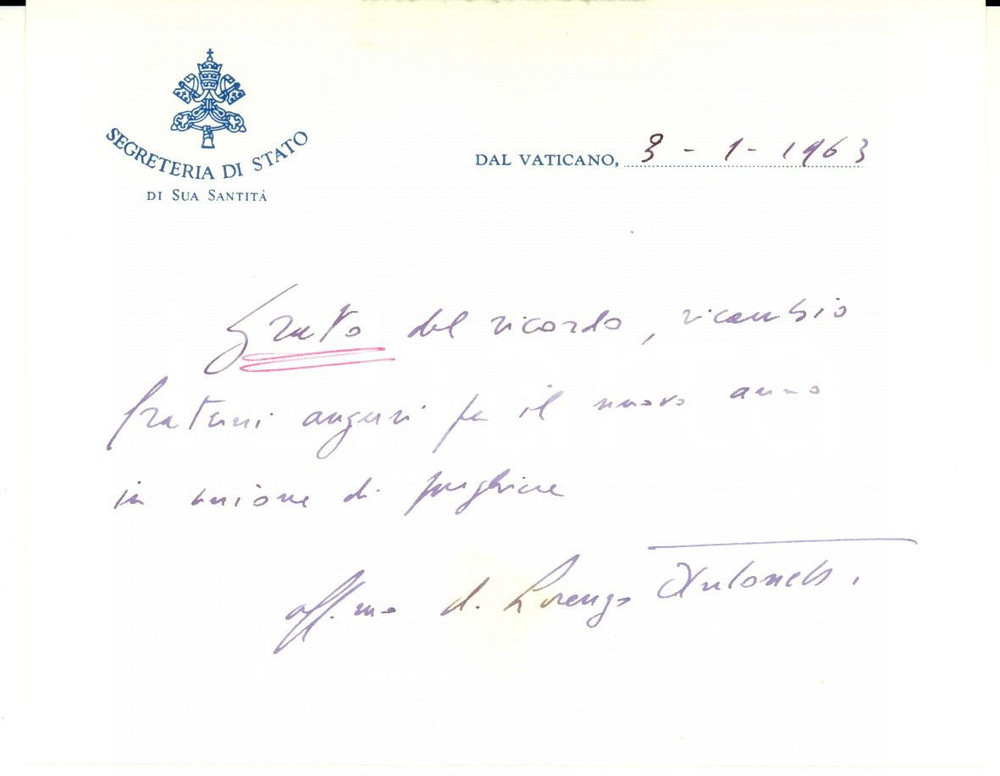 SEGRETERIA DI STATO
DI SUA SANTITÀ
DAL VATICANO, 3-1-1963
Grato del ricordo, ricambio
fraterni auguri per il nuovo anno
in unione di preghiere
aff.mo d. Lorenzo Antonelli.